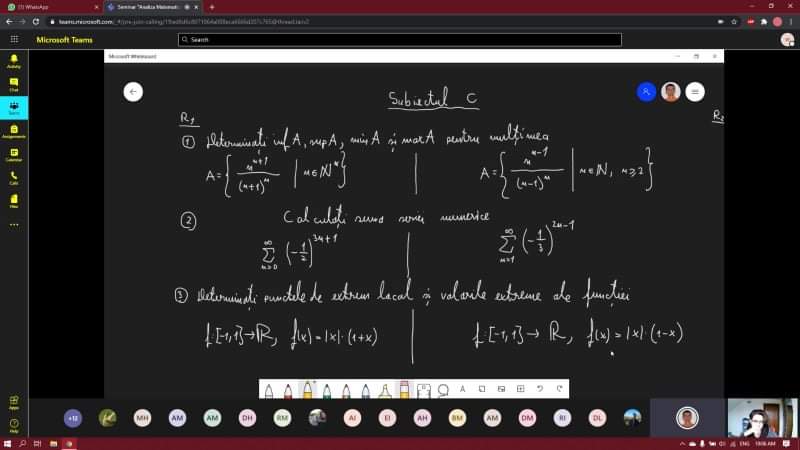 (1) WhatsApp
Seminar "Analiza Matematica
Microsoft Teams
Search
Activity
Chat
Teams
Assignments
Calendar
Calls
Files
Apps
Help
Microsoft Whiteboard
Subiectul C
R1
① Determinați inf A, sup A, min A și max A pentru mulțimea
A = { n^(n+1) / (n+1)^n | n ∈ ℕ* } | A = { n^(n-1) / (n-1)^n | n ∈ ℕ, n ≥ 2 }
② Calculați suma seriei numerice
∑_{n=0}^{∞} (-1/2)^{3n+1} | ∑_{n=1}^{∞} (-1/3)^{2n-1}
③ Determinați punctele de extrem local și valorile extreme ale funcției
f : [-1, 1] → ℝ, f(x) = |x| · (1+x) | f : [-1, 1] → ℝ, f(x) = |x| · (1-x)
+12 MH AM AM DH RM AI EI AH BM AM DM RI DL
ENG 10:06 AM